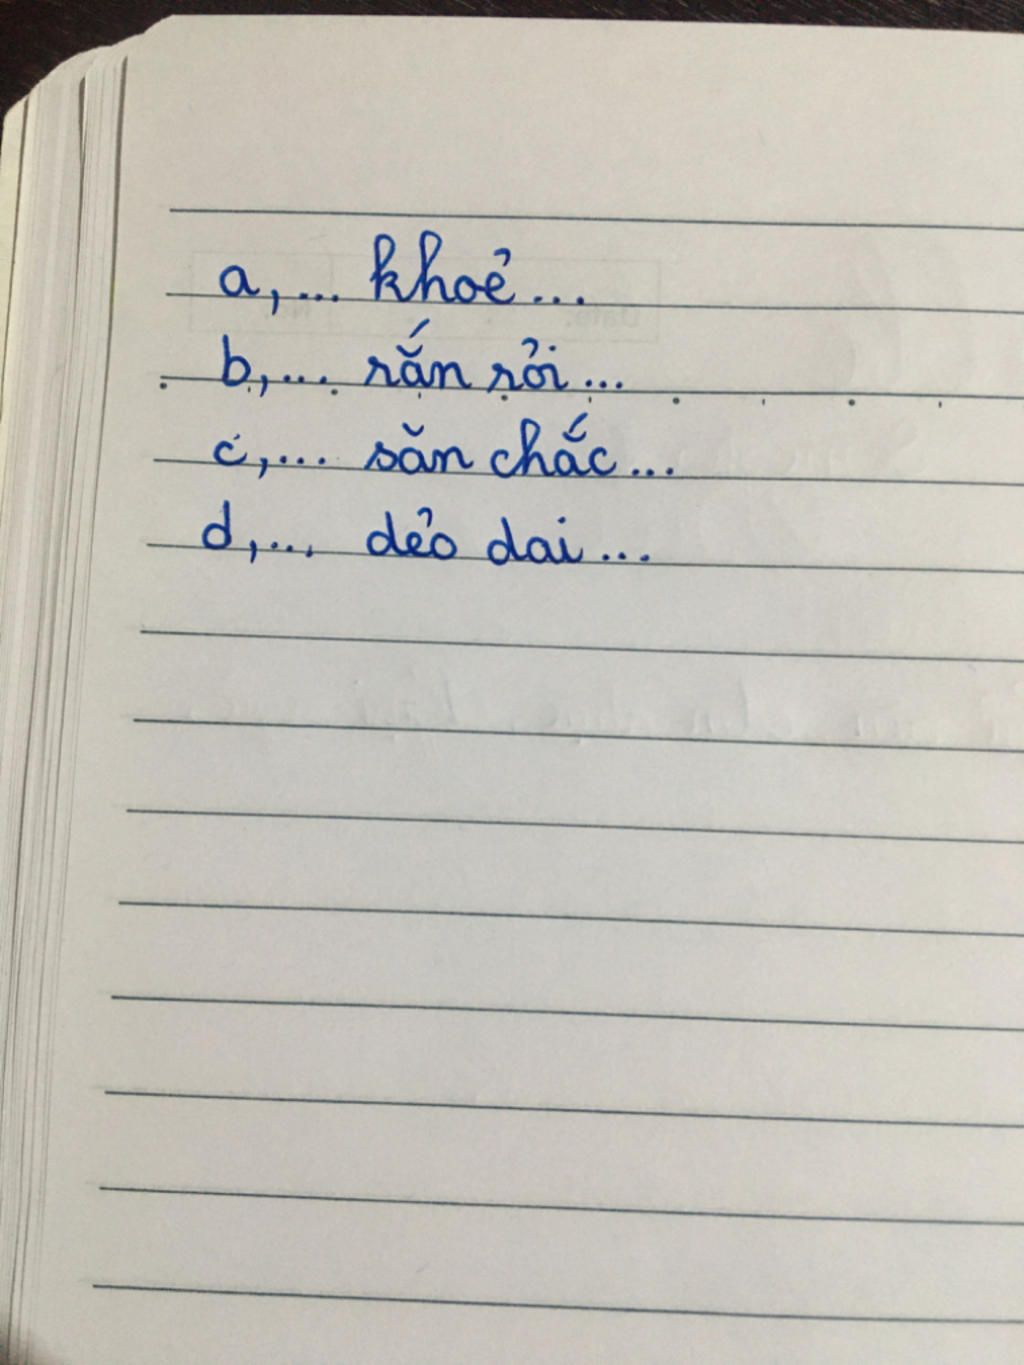 a, ... khoẻ ...
b, ... rắn rỏi ...
c, ... săn chắc ...
d, ... dẻo dai ...